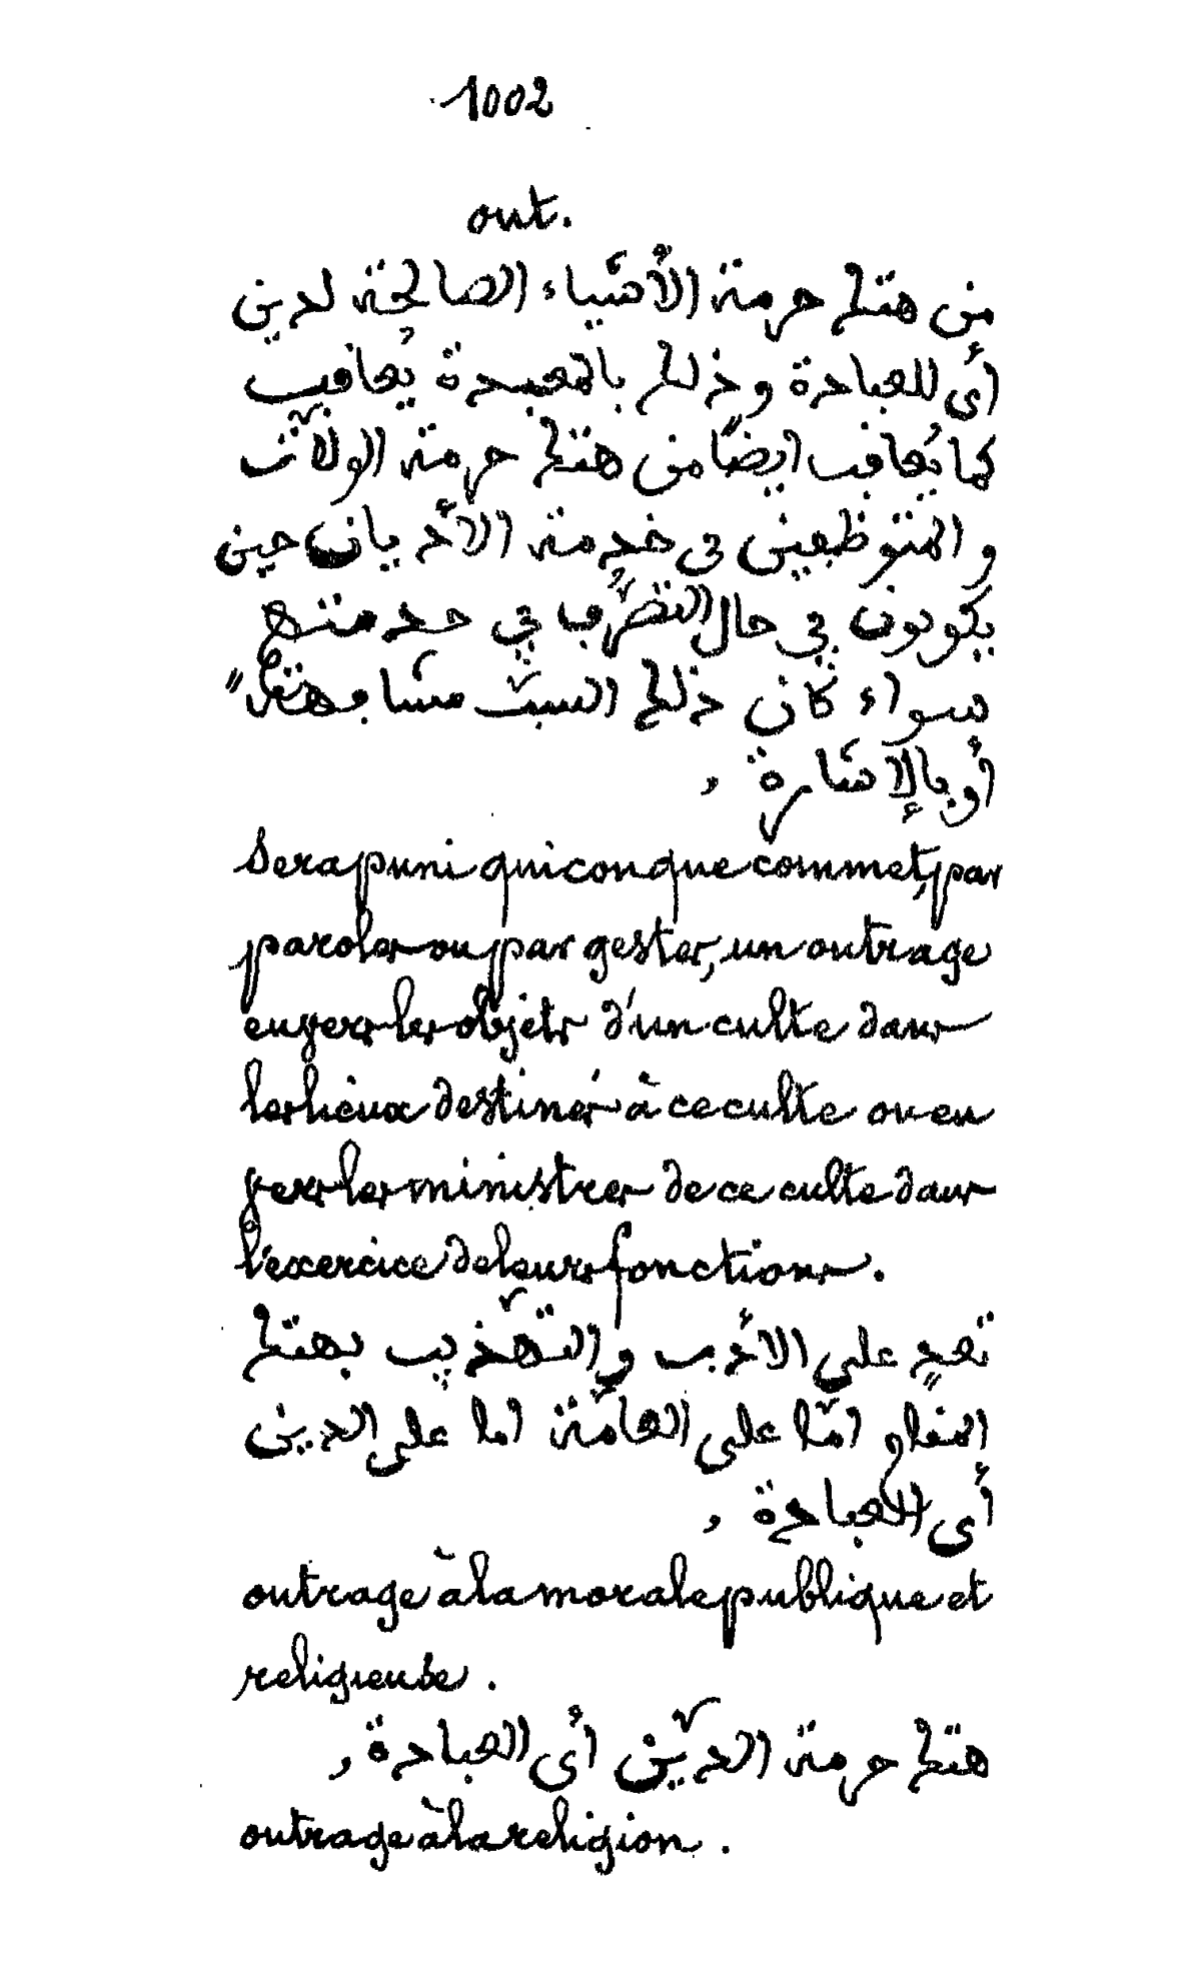 1002
out.
من هتك حرمة الأشياء الصالحة لدين
أى للعبادة وذلك بالمعبدة يُعاقب
كما يُعاقب ايضًا من هتك حرمة الولاّت
و المتوظفين فى خدمة الأديان حين
يكونون في حال التصرُّف في خدمتهم
سواء كان ذلك السبّ مشا
أو بالإشارة ,
Sera puni quiconque commet, par
paroles ou par gestes, un outrage
envers les objets d'un culte dans
les lieux destinés à ce culte ou en
vers les ministres de ce culte dans
l'exercice de leurs fonctions.
تعدٍ على الأدب و التهّذيب بهتك
امّا على العامّة اما على الدين
أى العبادة ,
outrage à la morale publique et
religieuse.
هتك حرمة الديّن أى العبادة ,
outrage à la religion.